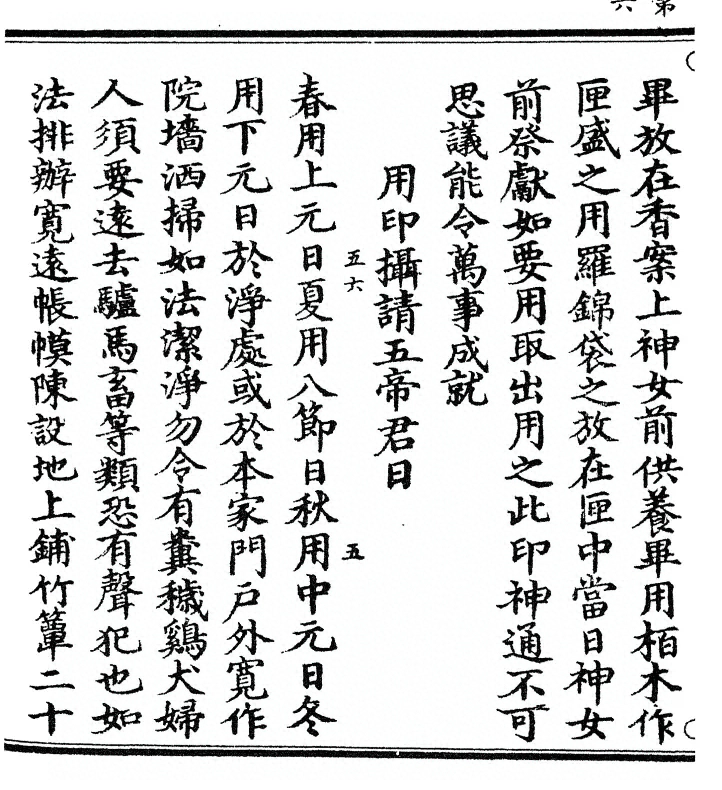 第八
六
畢放在香案上神女前供養畢用栢木作
匣盛之用羅錦袋之放在匣中當日神女
前祭獻如要用取出用之此印神通不可
思議能令萬事成就
用印攝請五帝君日
五六
五
春用上元日夏用八節日秋用中元日冬
用下元日於淨處或於本家門戶外寬作
院墻洒掃如法潔淨勿令有糞穢鷄犬婦
人須要遠去驢馬畜等類恐有聲犯也如
法排辦寬遠帳幙陳設地上鋪竹簟二十